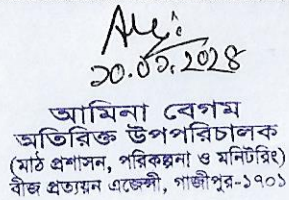 ২০.০১.2024
আমিনা বেগম
অতিরিক্ত উপপরিচালক
(মাঠ প্রশাসন, পরিকল্পনা ও মনিটরিং)
বীজ প্রত্যয়ন এজেন্সী, গাজীপুর-১৭০১